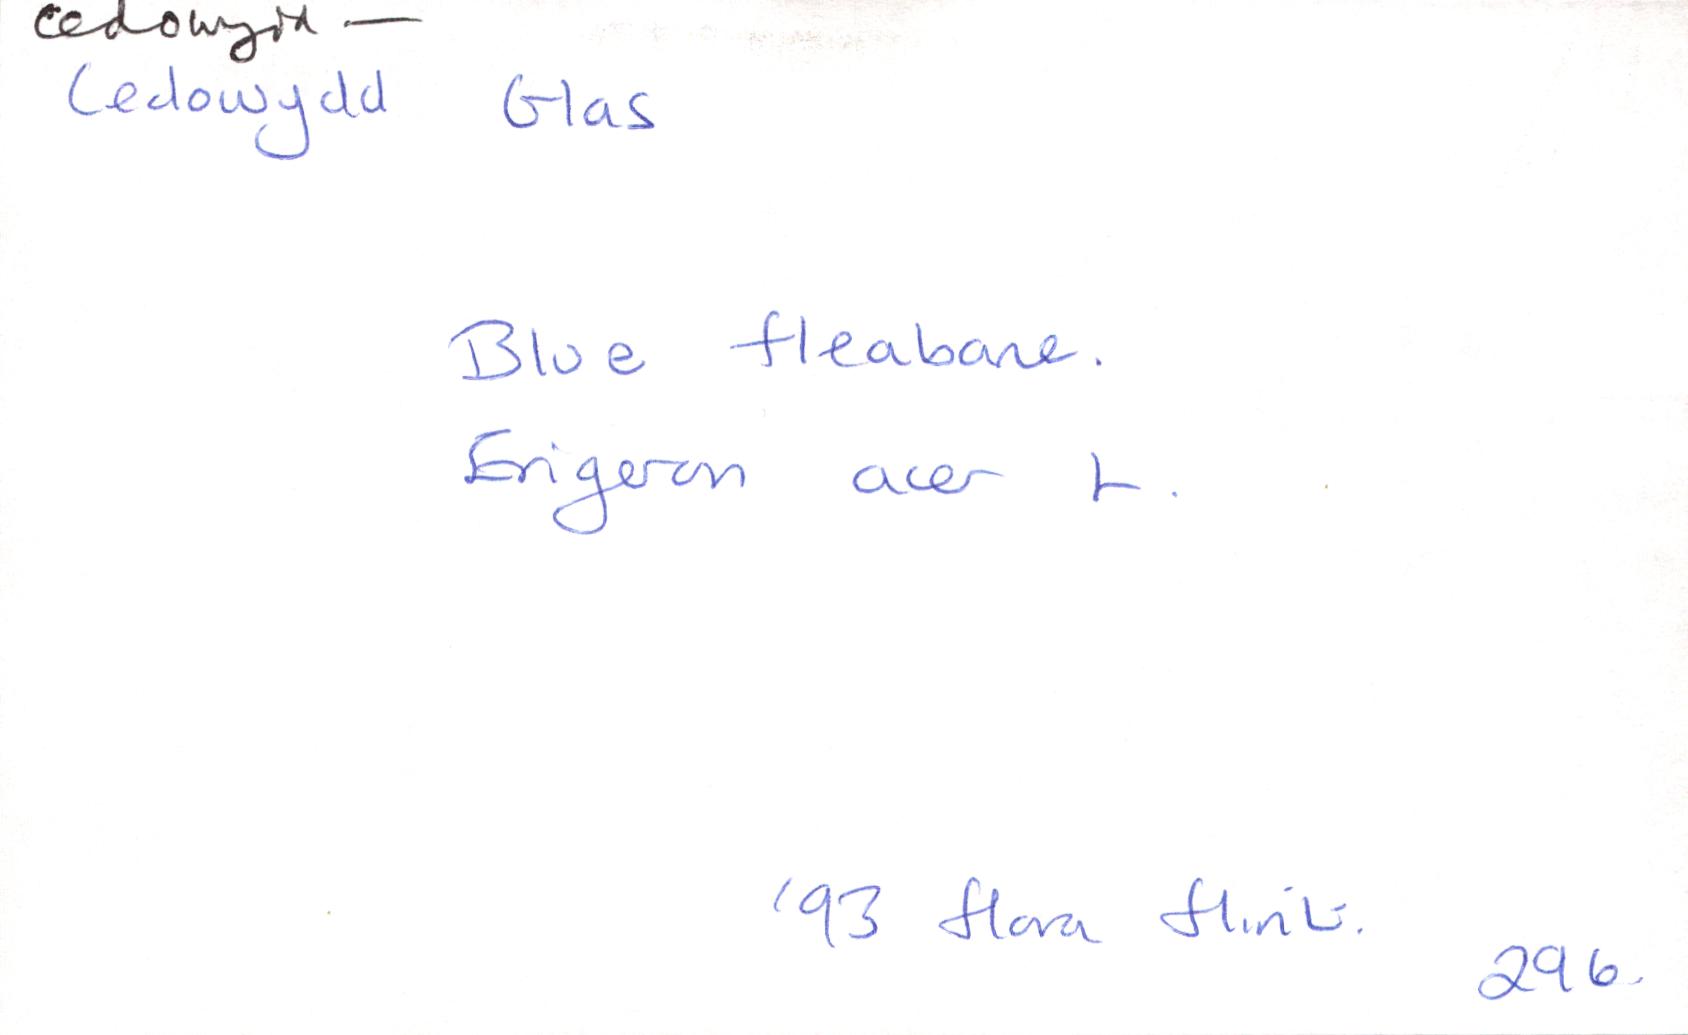 cedowydd —
Cedowydd Glas
Blue fleabane.
Erigeron acer L.
'93 flora flint.
296.